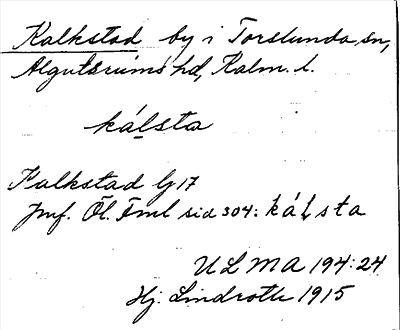 Kalkstad by i Torslunda sn,
Algutsrums hd, Kalm. l.
kálsta
Kalkstad Lj 17
Jmf. Öl. Fml sid 304: kálsta
ULMA 194:24
Hj. Lindroth 1915